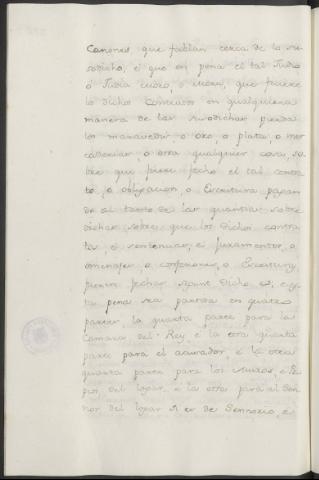 Canones que fablan cerca de lo su
sodicho, é que en pena el tal Judio
ó Judia Moro, o Mora, que ficiere
los dichos Contratos en qualquiera
manera de las susodichas pierda
los maravedis o oro, o plata, o mer
cadorias, o otra qualquier cosa, so
bre que fuere fecho el tal contra
to, o obligacion, o Escritura pagan
do al tanto de las quantias sobre
dichas sobre que los dichos contra
tos, é sentencias, é juramentos, o
omenages, o confesiones, o Escrituras
fueren fechas según dicho es, e es
ta pena sea partida en quatro
partes, la quarta parte para la
Camara del Rey, é la otra quarta
parte para el acusador, é la otra
quarta parte para los Muros, é
del logar, e la otra para al Sen
nor del logar si es de Sennorio, é